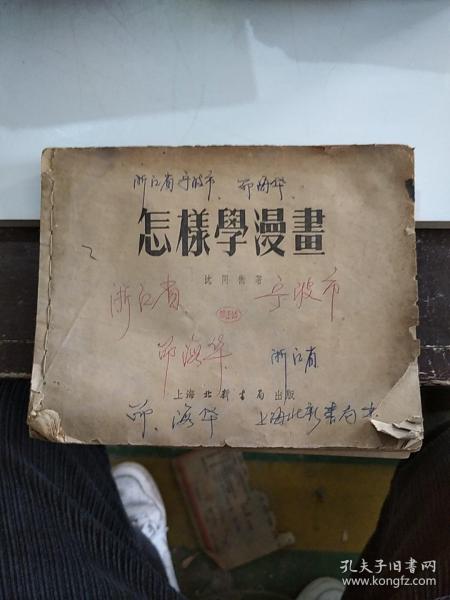 浙江省宁波市、邵海华
怎樣學漫畫
沈同衡著
浙江省 宁波市
邵海华 浙江省
上海北新書局出版
邵、海华 上海北新書局出
孔夫子旧书网
www.kongfz.com